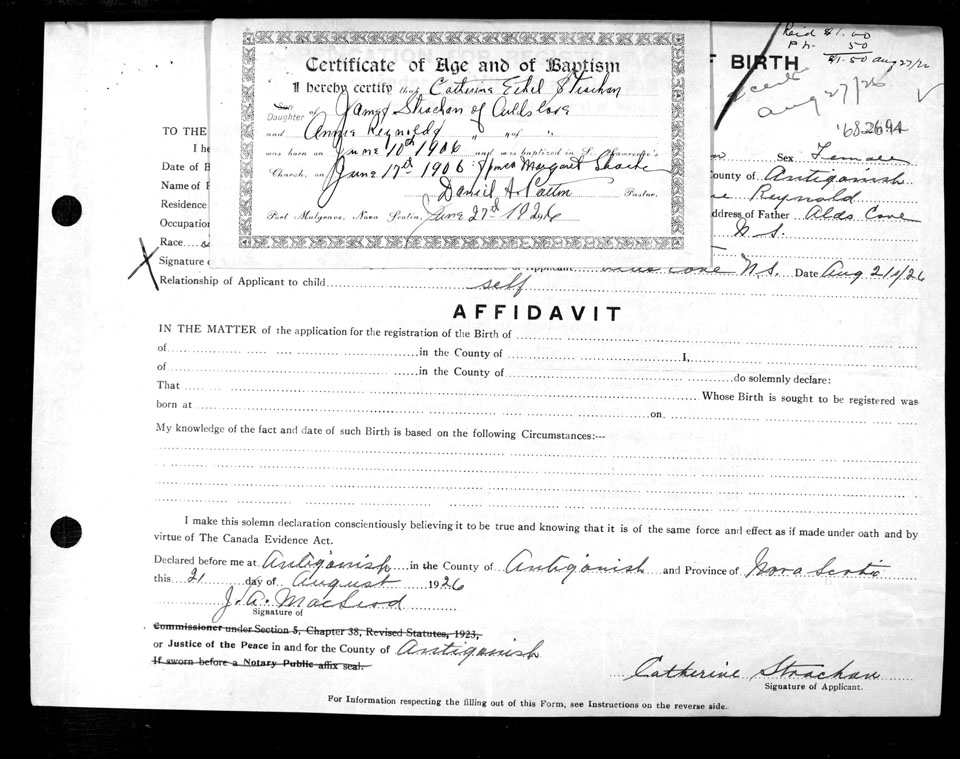 Certificate of Age and of Baptism
I hereby certify that Catherine Ethel Strachan
Son
Daughter of James Strachan of Auldscove
and Annie Reynolds " " of "
was born on June 10th 1906 and was baptized in
Church, on June 17th 1906 Margaret
Daniel A. Pastor.
Port Mulgrave, Nova Scotia, June 27th 1926
F BIRTH
Paid $1.00
50
$1.50 Aug 27/26
Aug 27/26
682694
TO THE
I he
Date of B Sex Female
Name of F County of Antigonish
Residence Reynold
Occupation Address of Father Alds Cove
Race N.S.
Signature of Applicant Cove N.S. Date Aug 21/26
Relationship of Applicant to child self
AFFIDAVIT
IN THE MATTER of the application for the registration of the Birth of
of in the County of I,
of in the County of do solemnly declare:
That Whose Birth is sought to be registered was
born at on
My knowledge of the fact and date of such Birth is based on the following Circumstances:--
I make this solemn declaration conscientiously believing it to be true and knowing that it is of the same force and effect as if made under oath and by
virtue of The Canada Evidence Act.
Declared before me at Antigonish in the County of Antigonish and Province of Nova Scotia
this 21 day of August 1926
J. A. MacLeod
Signature of
Commissioner under Section 5, Chapter 38, Revised Statutes, 1923,
or Justice of the Peace in and for the County of Antigonish
If sworn before a Notary Public affix seal.
Catherine Strachan
Signature of Applicant.
For Information respecting the filling out of this Form, see Instructions on the reverse side.